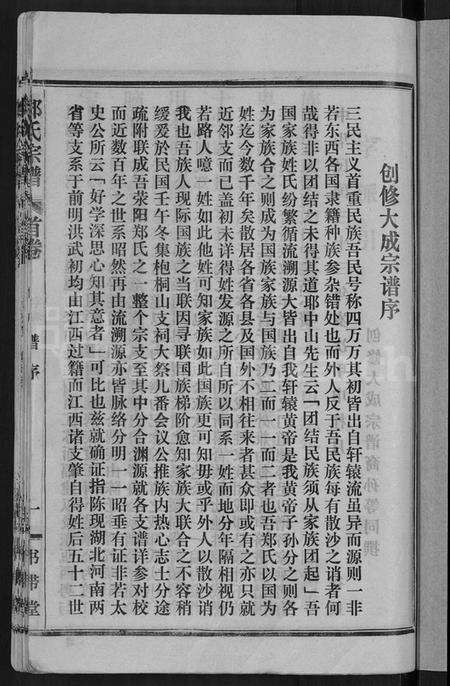 创修大成宗谱序
三民主义首重民族吾民号称四万万其初皆出自轩辕流虽异而源则一非
若东西各国隶籍种族参杂错处也而外人反于吾民族每有散沙之诮者何
哉得非以团结之未得其道耶中山先生云「团结民族须从家族团起」吾
国家族姓氏纷繁循流溯源大皆出自我轩辕黄帝是我黄帝子孙分之则各
为家族合之则成为国族家族与国族乃二而一一而二者也吾郑氏以国为
姓迄今数千年矣散居各省各县及国外不相往来者甚众即或有之亦只就
近邻支而已盖初未详得姓发源之所自所以同系一姓而地分年隔相视仍
若路人噫一姓如此他姓可知家族如此国族更可知毋或乎外人以散沙诮
我也吾族人现际国族之当联因寻联国族梯阶愈知家族大联合之不容稍
缓爰於民国壬午冬集枹桐山支祠大祭几番会议公推族内热心志士分途
疏附联成吾荥阳郑氏之一整个宗支至其中分合渊源就各支谱详参对校
而近数百年之世系昭然再由流溯源亦皆脉络分明一一昭垂有证非若太
史公所云「好学深思心知其意者」可比也兹就确证指陈现湖北河南两
省等支系于前明洪武初均由江西过籍而江西诸支肇自得姓后五十二世
郑氏宗谱 首卷
谱序
一
书带堂